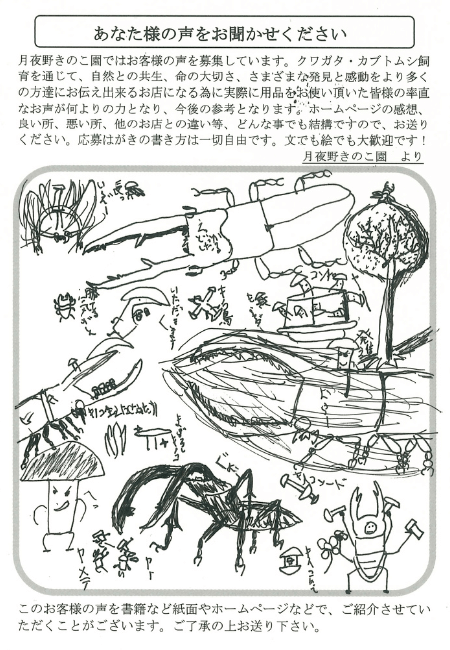 あなた様の声をお聞かせください
月夜野きのこ園ではお客様の声を募集しています。クワガタ・カブトムシ飼
育を通じて、自然との共生、命の大切さ、さまざまな発見と感動をより多く
の方達にお伝え出来るお店になる為に実際に用品をお使い頂いた皆様の率直
なお声が何よりの力となり、今後の参考となります。ホームページの感想、
良い所、悪い所、他のお店との違い等、どんな事でも結構ですので、お送り
ください。応募はがきの書き方は一切自由です。文でも絵でも大歓迎です！
月夜野きのこ園　より
いただきます
このお客様の声を書籍など紙面やホームページなどで、ご紹介させてい
ただくことがございます。ご了承の上お送り下さい。